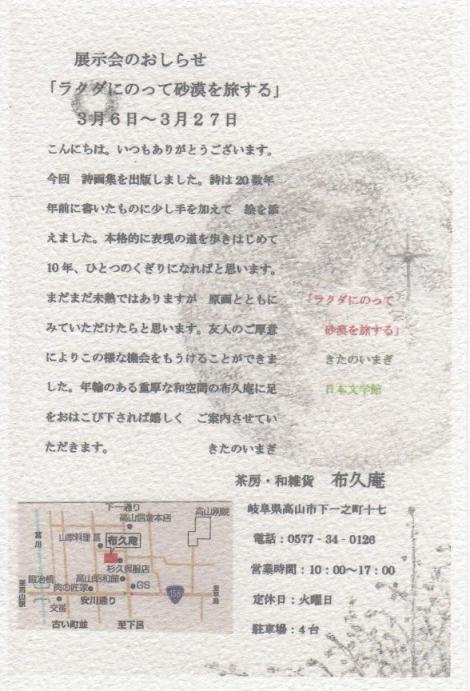 展示会のおしらせ
「ラクダにのって砂漠を旅する」
3月6日〜3月27日
こんにちは。いつもありがとうございます。
今回　詩画集を出版しました。詩は20数年
年前に書いたものに少し手を加えて　絵を添
えました。本格的に表現の道を歩きはじめて
10年、ひとつのくぎりになればと思います。
まだまだ未熟ではありますが　原画とともに
みていただけたらと思います。友人のご厚意
によりこの様な機会をもうけることができま
した。年輪のある重厚な和空間の布久庵に足
をおはこび下されば嬉しく　ご案内させてい
ただきます。　きたのいまぎ
「ラクダにのって
砂漠を旅する」
きたのいまぎ
日本文学館
茶房・和雑貨　布久庵
岐阜県高山市下一之町十七
電話：0577‐34‐0126
営業時間：10：00〜17：00
定休日：火曜日
駐車場：4台
下一通り
高山信金本店
高山別院
宮川
山車料理
布久庵
杉久呉服店
鍛冶橋
高山昭和館
肉の匠家
GS
158
交番
安川通り
古い町並
至下呂